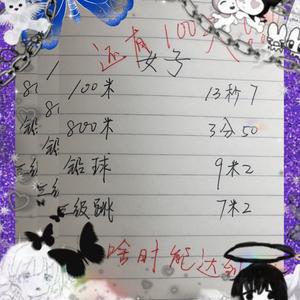 还有100天
女子
100米 13秒7
800米 3分50
铅球 9米2
三级跳 7米2
啥时能达到